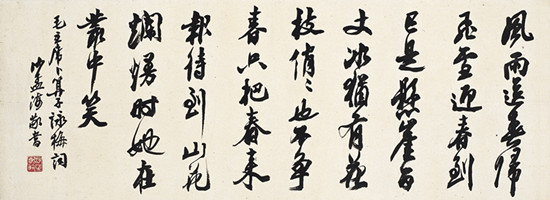 風雨送春歸
飛雪迎春到
已是懸崖百
丈冰猶有花
枝俏〻也不争
春只把春来
報待到山花
爛熳時她在
叢中笑
毛主席卜算子詠梅詞
沙孟海敬書